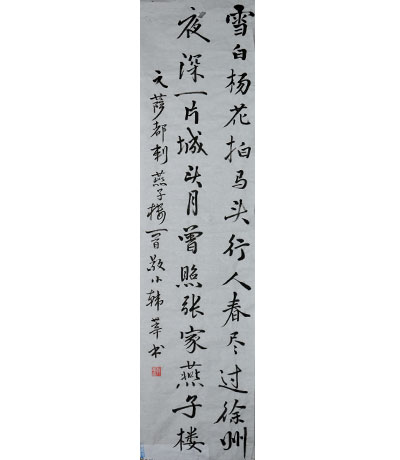 雪白杨花拍马头行人春尽过徐州
夜深一片城头月曾照张家燕子楼
元萨都剌燕子楼一首 韩 书